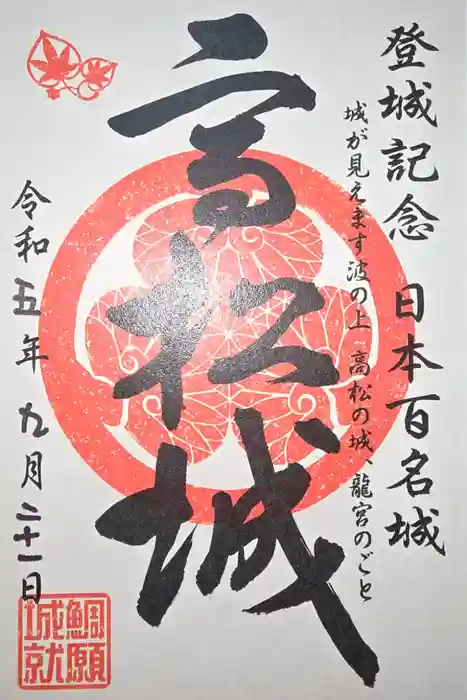 登城記念 日本百名城
城が見えます波の上 高松の城、龍宮のごと
高松城
令和五年 九月二十一日
鯛願
城就